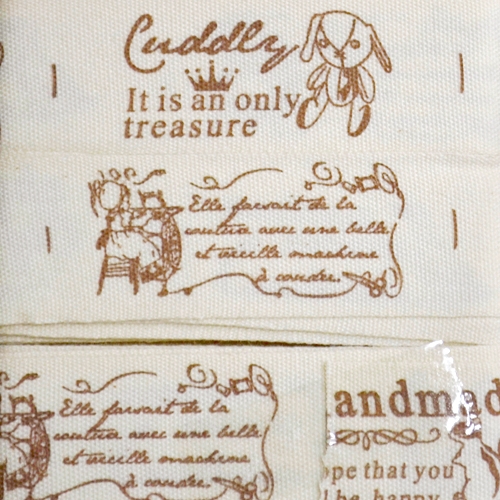 Cuddly
It is an only
treasure
Elle faisait de la
couture avec une belle
et vieille machine
à coudre.
Elle faisait de la
couture avec une belle
et vieille machine
à coudre.
andmad
ope that you
l be happ